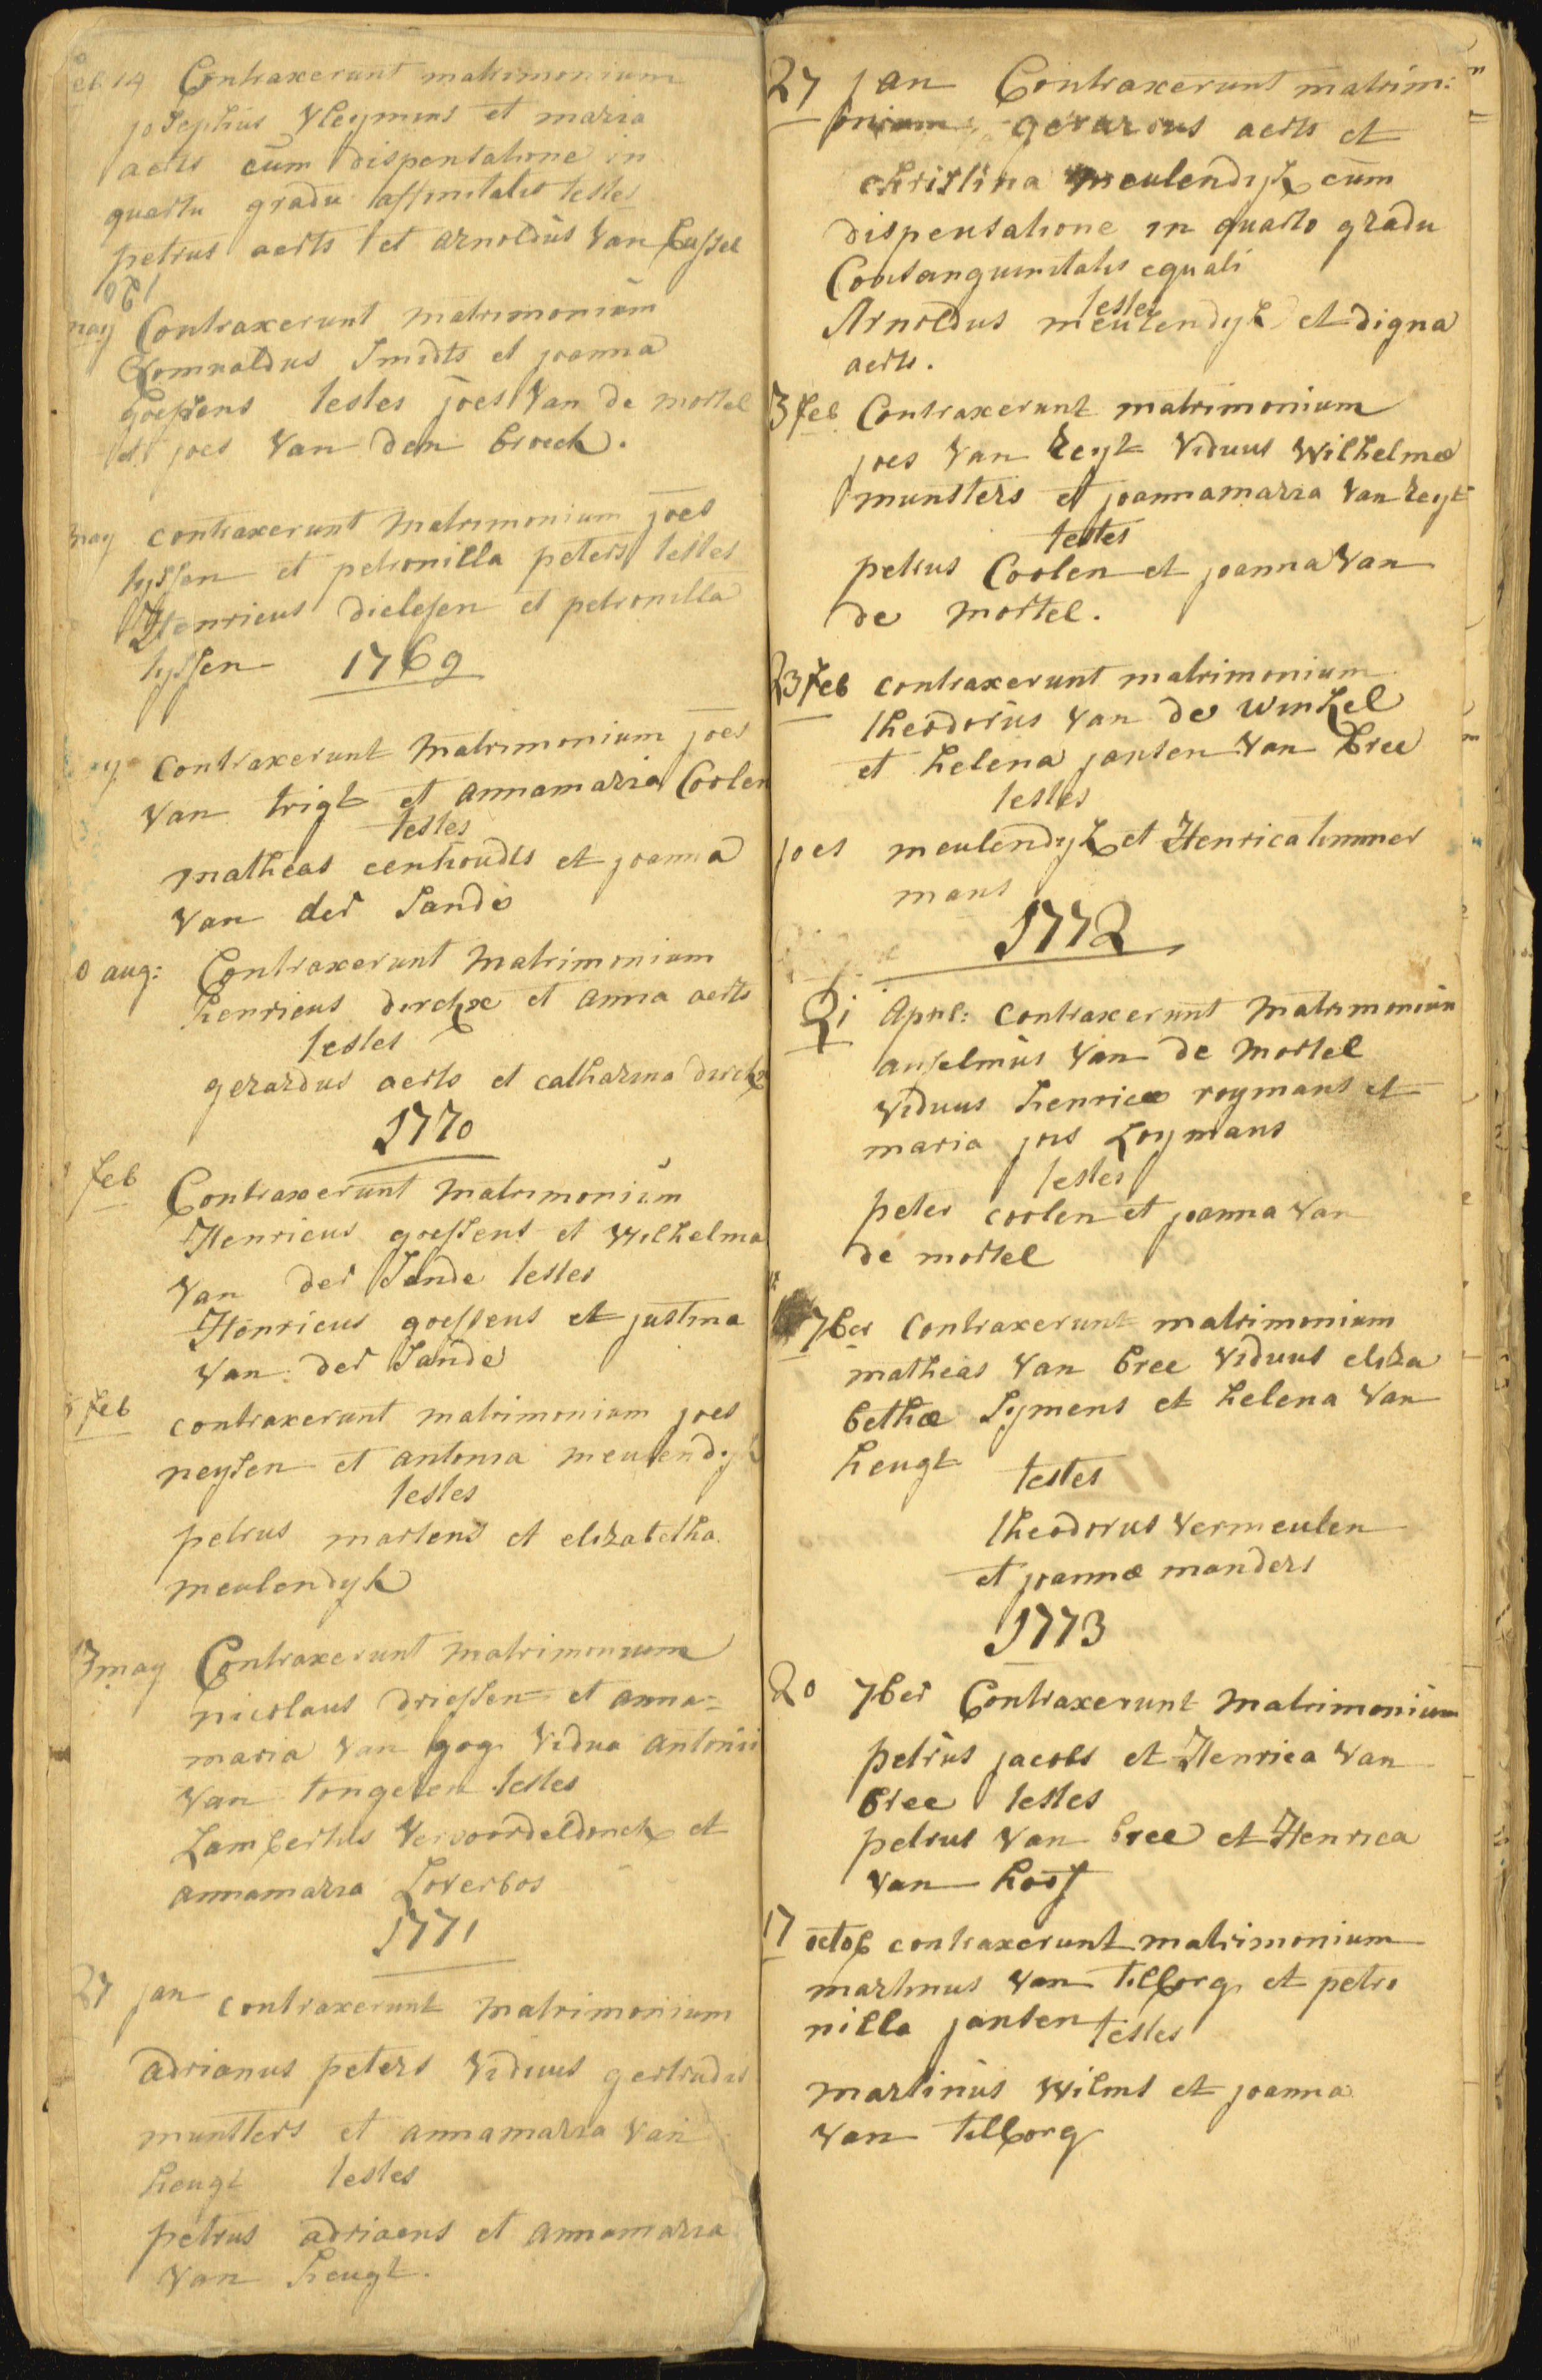 feb 14 Contraxerunt matrimonium
josephus Vleymins et maria
aerts cum dispensatione in
quarto gradu affinitatis testes
petrus aerts et arnoldus Van Cassel
may Contraxerunt matrimonium
Romualdus Smidts et joanna
goessens testes joes Van de mortel
et joes Van den broeck.
may contraxerunt matrimonium joes
tyssen et petronilla peters testes
Henricus dielesen et petronilla
tyssen 1769
contraxerunt matrimonium joes
Van trigt et annamaria Coolen
testes
matheas eenhoudts et joanna
Van der Sande
0 aug: Contraxerunt matrimonium
henricus dirckx et anna aerts
testes
gerardus aerts et catharina dirckx
1770
feb Contraxerunt matrimonium
Henricus goessens et Wilhelma
Van der Sande testes
Henricus goessens et justina
Van der Sande
feb contraxerunt matrimonium joes
neysen et antonia meulendyk
testes
petrus martens et elizabetha
meulendyk
13 may Contraxerunt matrimonium
nicolaus driessen et anna=
maria Van gog Vidua antonii
Van tongeren testes
Lambertus Vervoordeldonck et
annamaria Loverbos
1771
27 jan contraxerunt matrimonium
adrianus peters Viduus gertrudis
munsters et annamaria Van
heugt testes
petrus adriaens et annamaria
Van heugt.
27 jan Contraxerunt matrim:
onium gerardus aerts et
christina meulendyk cum
dispensatione in quarto gradu
Consanguinitatis equali
testes
Arnoldus meulendyk et digna
aerts.
3 feb Contraxerunt matrimonium
joes Van reyt Viduus Wilhelmæ
munsters et joannamaria Van reyt
testes
petrus Coolen et joanna Van
de mortel.
23 feb contraxerunt matrimonium
theodorus Van de winkel
et helena jansen Van bree
testes
joes meulendyk et Henrica timmer
mans
1772
21 April: contraxerunt matrimonium
anselmus Van de mortel
Viduus henricæ roymans et
maria jois Loymans
testes
peter coolen et joanna Van
de mortel
7ber contraxerunt matrimonium
matheas Van bree Viduus eliza
bethæ Symens et helena Van
heugt
testes
theodorus Vermeulen
et joannæ manders
1773
20 7ber Contraxerunt matrimonium
petrus jacobs et Henrica Van
bree testes
petrus Van bree et Henrica
Van hoof
17 octob contraxerunt matrimonium
martinus Van tilborg et petro
nilla jansen testes
martinus Wilms et joanna
Van tilborg